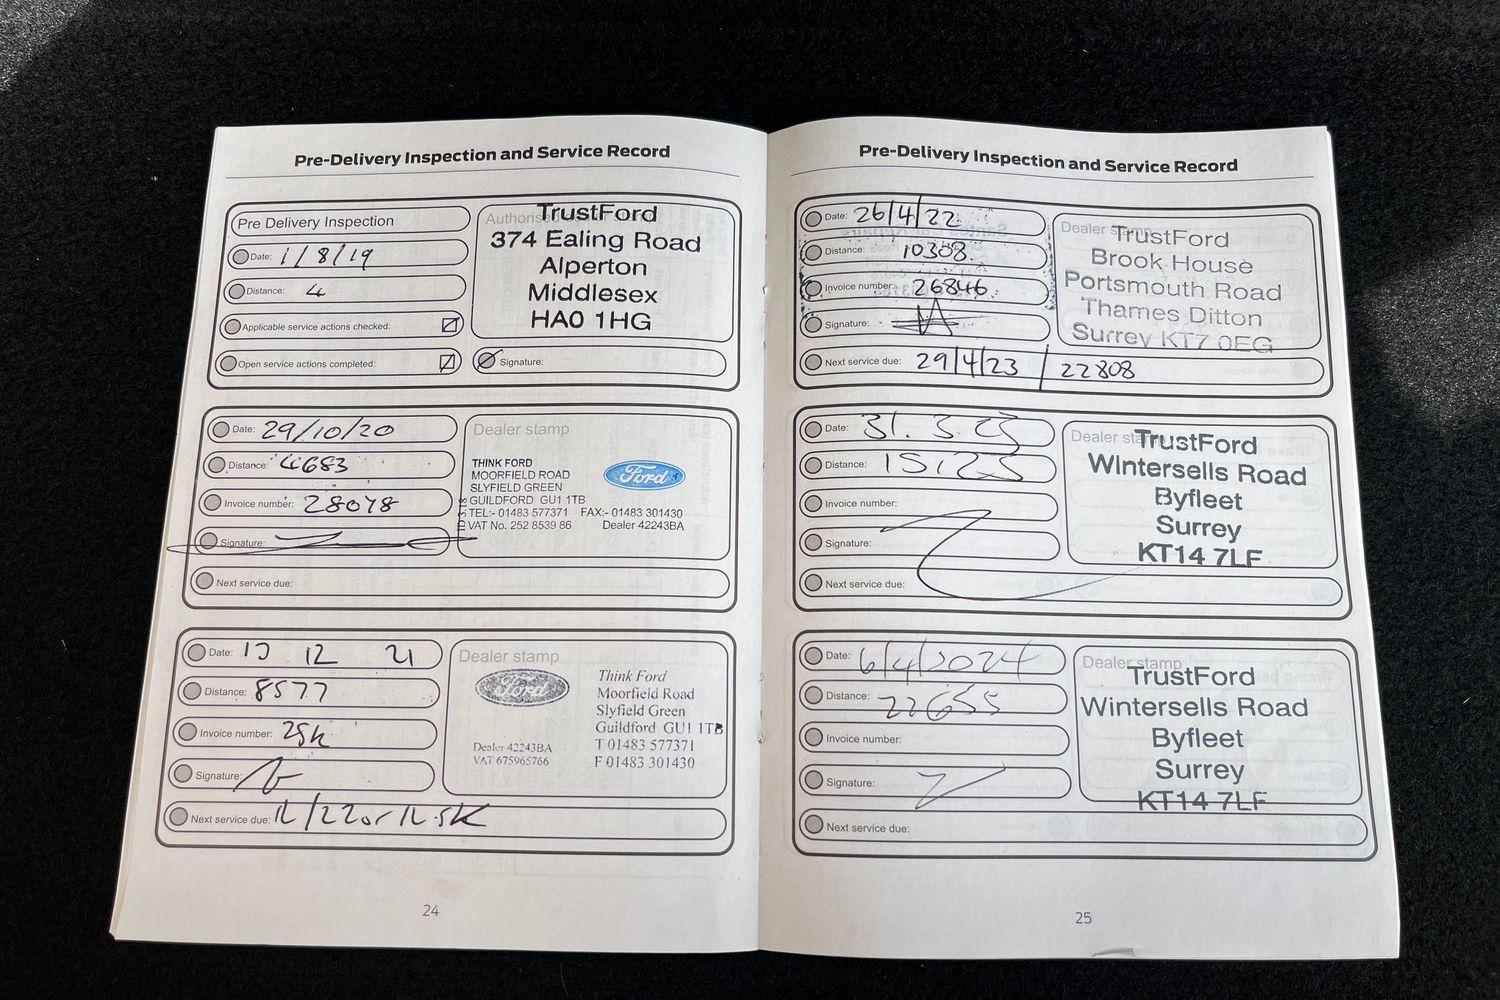 Pre-Delivery Inspection and Service Record
Pre Delivery Inspection
Date: 1/8/19
Distance: 4
Applicable service actions checked:
Open service actions completed:
Authorised
TrustFord
374 Ealing Road
Alperton
Middlesex
HA0 1HG
Signature:
Date: 29/10/20
Distance: 4683
Invoice number: 28078
Signature:
Next service due:
Dealer stamp
THINK FORD
MOORFIELD ROAD
SLYFIELD GREEN
GUILDFORD GU1 1TB
TEL:- 01483 577371 FAX:- 01483 301430
VAT No. 252 8539 86 Dealer 42243BA
Ford
Date: 12 21
Distance: 8577
Invoice number:
Signature:
Next service due: 12/22 or 12.5K
Dealer stamp
Ford
Dealer 42243BA
VAT 675965766
Think Ford
Moorfield Road
Slyfield Green
Guildford GU1 1TB
T 01483 577371
F 01483 301430
24
Pre-Delivery Inspection and Service Record
Date: 26/4/22
Distance: 10308
Invoice number: 26846
Signature:
Next service due: 29/4/23 / 22808
Dealer stamp
TrustFord
Brook House
Portsmouth Road
Thames Ditton
Surrey KT7 0EG
Date: 31.3.23
Distance:
Invoice number:
Signature:
Next service due:
Dealer stamp
TrustFord
Wintersells Road
Byfleet
Surrey
KT14 7LF
Date: 6/4/2024
Distance: 22655
Invoice number:
Signature:
Next service due:
Dealer stamp
TrustFord
Wintersells Road
Byfleet
Surrey
KT14 7LF
25